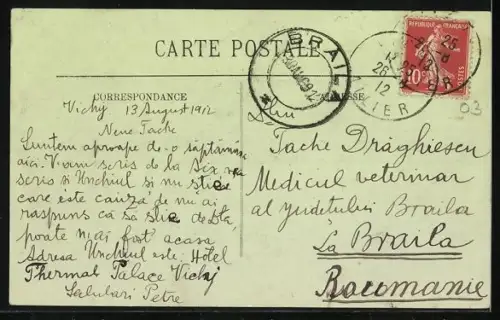 CARTE POSTALE
CORRESPONDANCE
ADRESSE
REPUBLIQUE FRANÇAISE
10
POSTES
BRAILA
ALLIER
26
12
03
Vichy 13 August 1912
Nene Tache
Suntem aproape de-o săptamana
aici. V-am scris de la Aix
scris si Unchiul si nu stie
care este cauza de nu ai
raspuns ca să stie de d-ta,
poate n-ai fost acasa
Adresa Unchiul este: Hotel
Thermal Palace Vichy
Salutari Petre
Dlui
Tache Drăghiescu
Medicul veterinar
al judetului Braila
La Braila
Roumanie